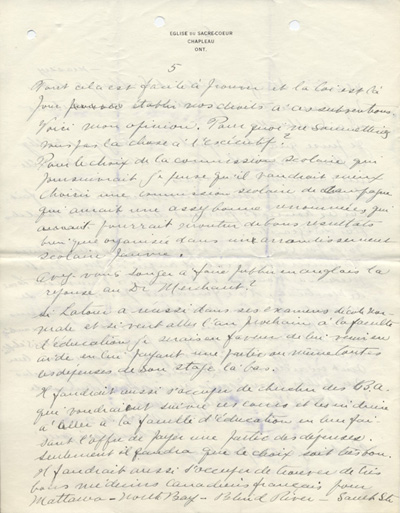 EGLISE DU SACRE-COEUR
CHAPLEAU
ONT.
5
Tout cela est facile à prouver et la loi est là
pour établir nos droits à ces subventions.
Voici mon opinion. Pourquoi ne soumettriez
vous pas la chose à l'Exécutif.
Pour le choix de la commission scolaire qui
poursuivrait je pense qu'il vaudrait mieux
choisir une commission scolaire de campagne
qui aurait une assez bonne renommée, qui
pourrait montrer de bons résultats
bien que organisée dans un arrondissement
scolaire pauvre.
Avez vous songer à faire publier en anglais la
réponse au Dr Merchant?
Si Latour a réussi dans ses examens d'école Nor-
male et si veut aller l'an prochain à la faculté
d'Education, je serais en faveur de lui venir en
aide en lui payant une partie ou même toutes
les dépenses de son stage là bas.
Il faudrait aussi s'occuper de chercher des B.A.
qui voudraient suivre ces cours et les induire
à aller à la faculté d'Education en leur fai-
sant l'offre de payer une partie des dépenses.
Seulement il faudra que le choix soit très bon.
Il faudrait aussi s'occuper de trouver de très
bons médecins Canadiens français pour
Mattawa - North Bay - Blind River - Sault Ste